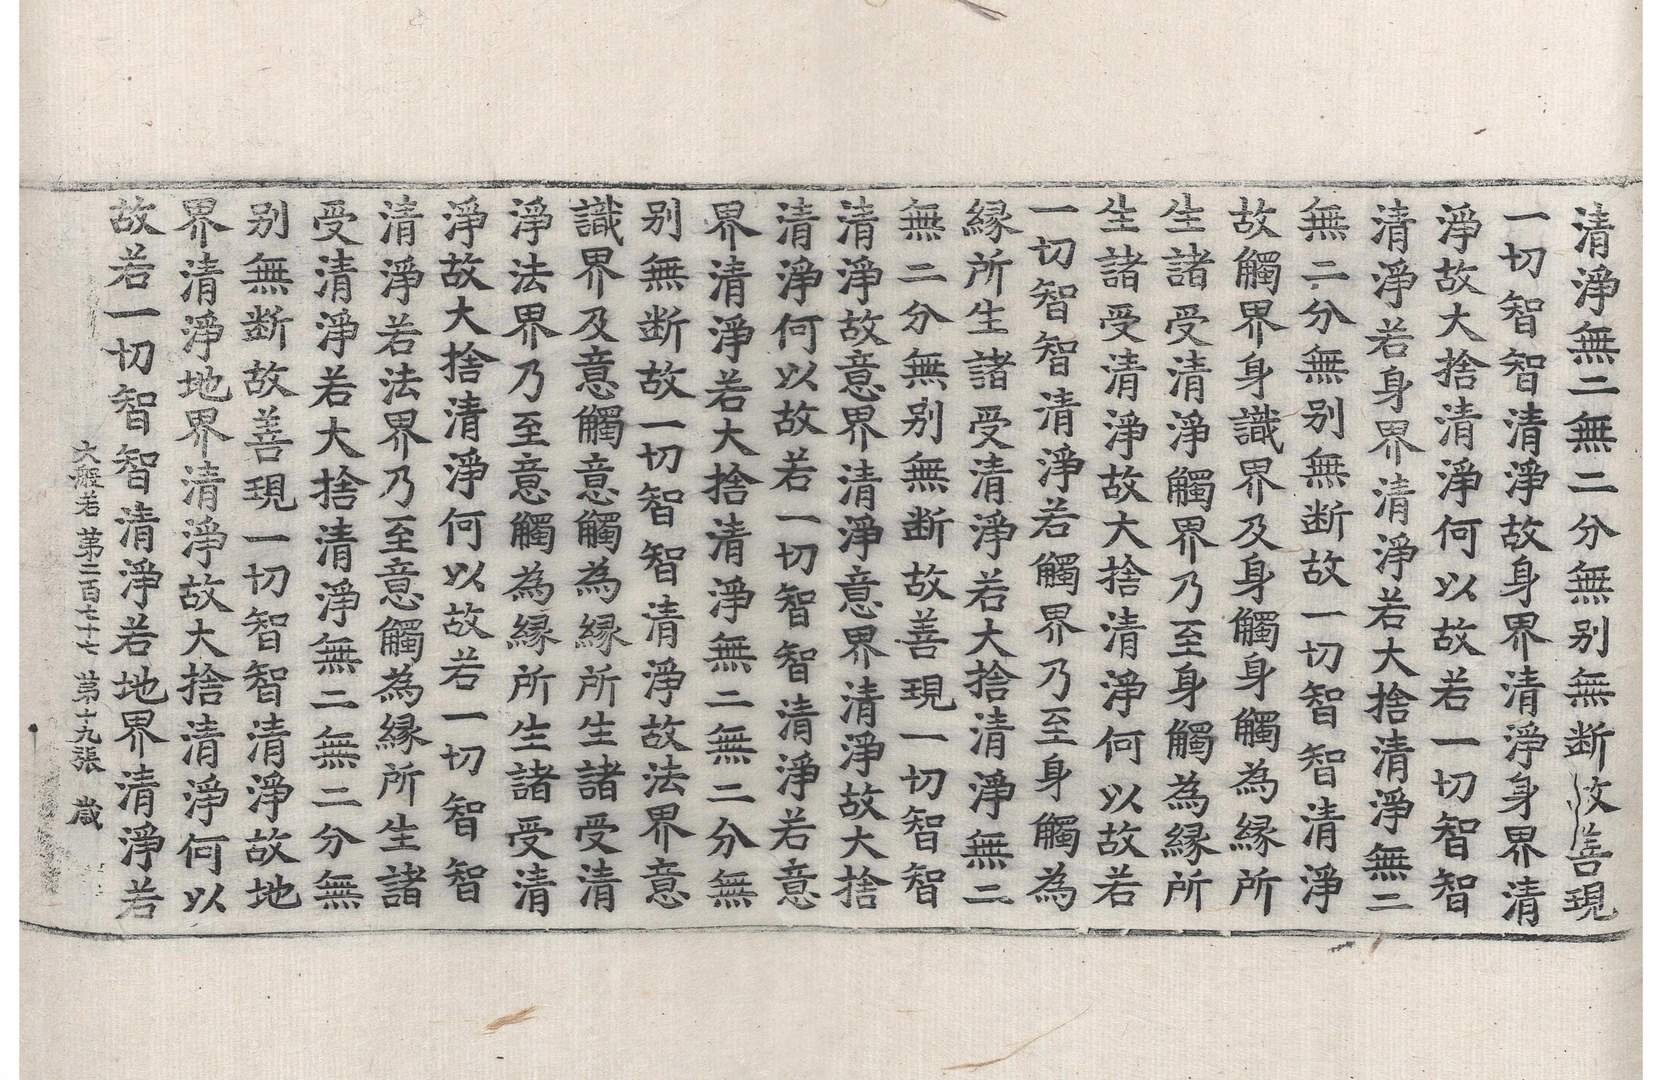 清淨無二無二分無别無断故善現
一切智智清淨故身界清淨身界清
淨故大捨清淨何以故若一切智智
清淨若身界清淨若大捨清淨無二
無二分無别無断故一切智智清淨
故觸界身識界及身觸身觸為縁所
生諸受清淨觸界乃至身觸為縁所
生諸受清淨故大捨清淨何以故若
一切智智清淨若觸界乃至身觸為
縁所生諸受清淨若大捨清淨無二
無二分無别無断故善現一切智智
清淨故意界清淨意界清淨故大捨
清淨何以故若一切智智清淨若意
界清淨若大捨清淨無二無二分無
别無断故一切智智清淨故法界意
識界及意觸意觸為縁所生諸受清
淨法界乃至意觸為縁所生諸受清
淨故大捨清淨何以故若一切智智
清淨若法界乃至意觸為縁所生諸
受清淨若大捨清淨無二無二分無
别無断故善現一切智智清淨故地
界清淨地界清淨故大捨清淨何以
故若一切智智清淨若地界清淨若
大般若 第二百七十七 第十九張 歲